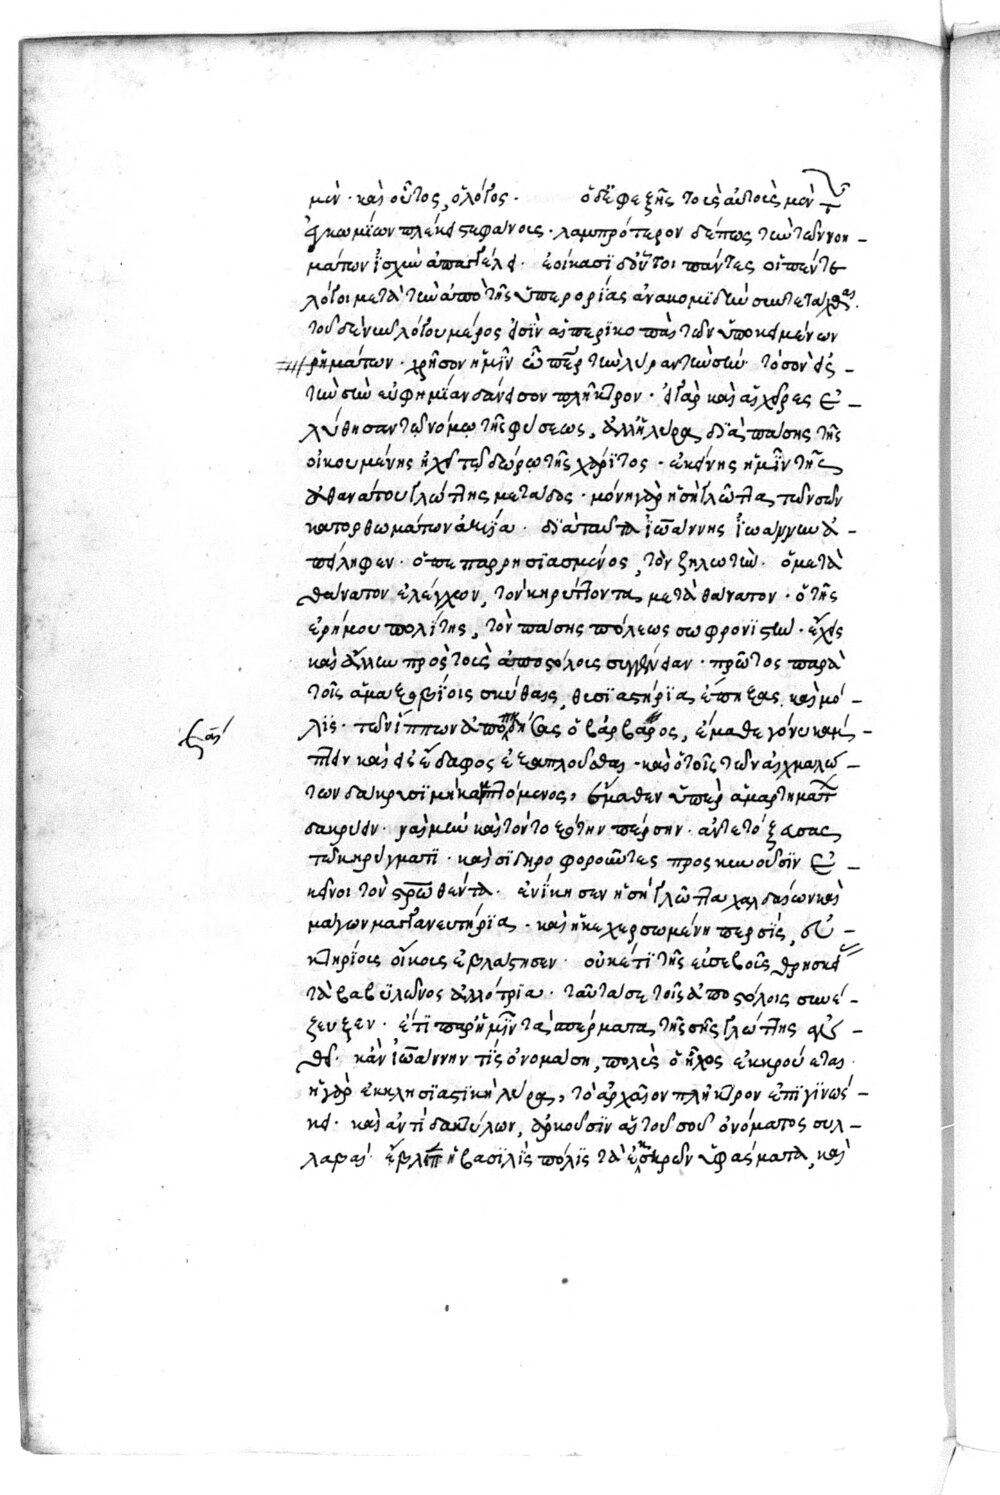 μέν· καὶ οὗτος, ὁ λόγος. ὁ δὲ ἐφεξῆς τοῖς αὐτοῖς μὲν τ
ἐγκωμίων πλέκει στεφάνοις· λαμπρότερον δέ πως τὴν τῶν νοη-
μάτων ἰσχὺν ἀπαγγέλει. ἐοίκασι δ' οὗτοι πάντες οἱ πέντε
λόγοι μετὰ τὴν ἀπὸ τῆς ὑπερορίας ἀνακομιδὴν συντετάχθαι.
τοῦ δὲ νῦν λόγου μέρος εἰσὶν αἱ περικοπαὶ τῶν ὑποκειμένων
ῥημάτων· χρῆσον ἡμῖν ὦ πάτερ τὴν λύραν τὴν σήν· τὸ σὸν εἰς
τὴν σὴν εὐφημίαν δάνεισον πλῆκτρον· εἰ γὰρ καὶ αἱ χεῖρες ἐ-
λύθησαν τῷ νόμῳ τῆς φύσεως, ἀλλ' ἡ λύρα διὰ πάσης τῆς
οἰκουμένης ἠχεῖ τῷ δώρῳ τῆς χάριτος· ἐκείνης ἡμῖν τῆς
ἀθανάτου γλώττης μετάδος· μόνη γὰρ ἡ σὴ γλῶττα τῶν σῶν
κατορθωμάτων ἀξία. διὰ ταῦτα ἰωάννης ἰωάννην ἀ-
πείληφεν· ὁ πεπαρρησιασμένος, τὸν ζηλωτήν· ὁ μετὰ
θάνατον ἐλέγχων, τὸν κηρύττοντα μετὰ θάνατον· ὁ τῆς
ἐρήμου πολίτης, τὸν πάσης πόλεως σωφρονιστήν· ἔχεις
καὶ ἄλλην πρὸς τοὺς ἀποστόλους συγγένειαν· πρῶτος παρὰ
τοῖς ἁμαξοβίοις σκύθαις, θυσιαστήρια ἔπηξας καὶ μό-
λις· τῶν ἵππων ἀποβὰς ὁ βάρβαρος, ἔμαθε γόνυ κάμ-
πτειν καὶ εἰς ἔδαφος ἐξαπλοῦσθαι· καὶ ὁ τοῖς τῶν αἰχμαλώ-
των δάκρυσι μὴ καμπτόμενος, ἔμαθεν ὑπὲρ ἁμαρτημάτων
δακρύειν. ναὶ μὴν καὶ τὸν τοξότην πέρσην· ἀντετόξευσας
τῷ κηρύγματι· καὶ σιδηροφοροῦντες προσκυνοῦσιν ἐ-
κεῖνοι τὸν σταυρωθέντα. ἐνίκησεν ἡ σὴ γλῶττα χαλδαίων καὶ
μάγων μαγγανευτήρια· καὶ ἡ κεχερσωμένη περσὶς, εὐ-
κτηρίοις οἴκοις ἐβλάστησεν· οὐκέτι τῆς εὐσεβοῦς θρησκεί
τὰ βαβυλῶνος ἀλλότρια. ταῦτά σε τοῖς ἀποστόλοις συνέ-
ζευξεν. ἔτι παρ' ἡμῖν τὰ σπέρματα τῆς σῆς γλώττης ἀν-
θεῖ. κἂν ἰωάννην τὶς ὀνομάσῃ, πολὺς ὁ ἦχος ἐκκρούεται·
ἡ γὰρ ἐκκλησιαστικὴ λύρα, τὸ ἀρχαῖον πλῆκτρον ἐπιγινώσ-
κει. καὶ ἀντὶ δακτύλων, ἀρκοῦσιν αἱ τοῦ σοῦ ὀνόματος συλ-
λαβαί· ἔβλεπε ἡ βασιλὶς πόλις τὰ ἐκ σηρῶν ὑφάσματα, καὶ